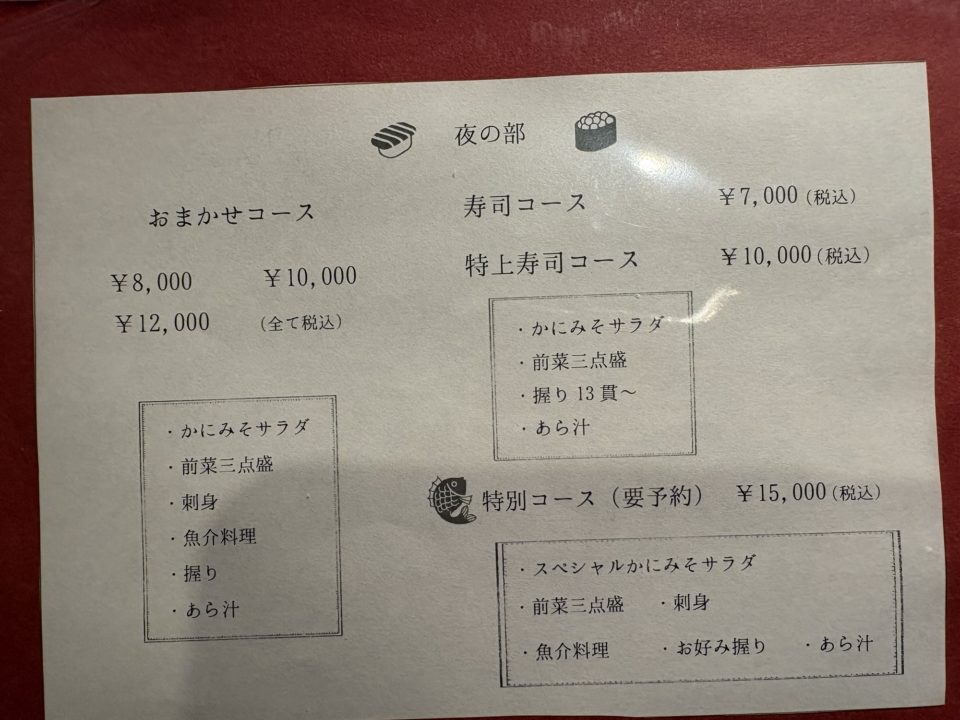 夜の部
おまかせコース
￥8,000 ￥10,000
￥12,000 (全て税込)
・かにみそサラダ
・前菜三点盛
・刺身
・魚介料理
・握り
・あら汁
寿司コース ￥7,000 (税込)
特上寿司コース ￥10,000 (税込)
・かにみそサラダ
・前菜三点盛
・握り 13 貫～
・あら汁
特別コース（要予約） ￥15,000 (税込)
・スペシャルかにみそサラダ
・前菜三点盛 ・刺身
・魚介料理 ・お好み握り ・あら汁